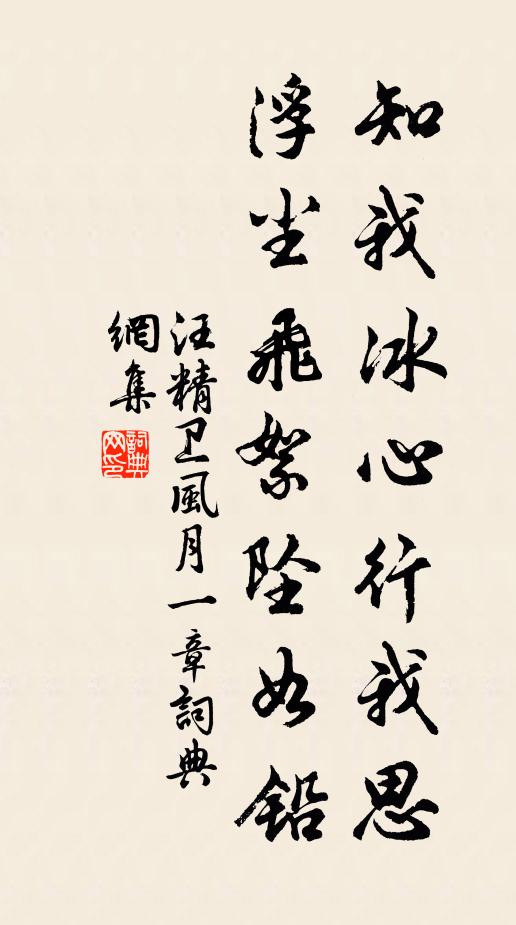 知我冰心行我思
浮尘飛絮坠如鉛
汪精卫風月一章詞典
網集
詞典
网印